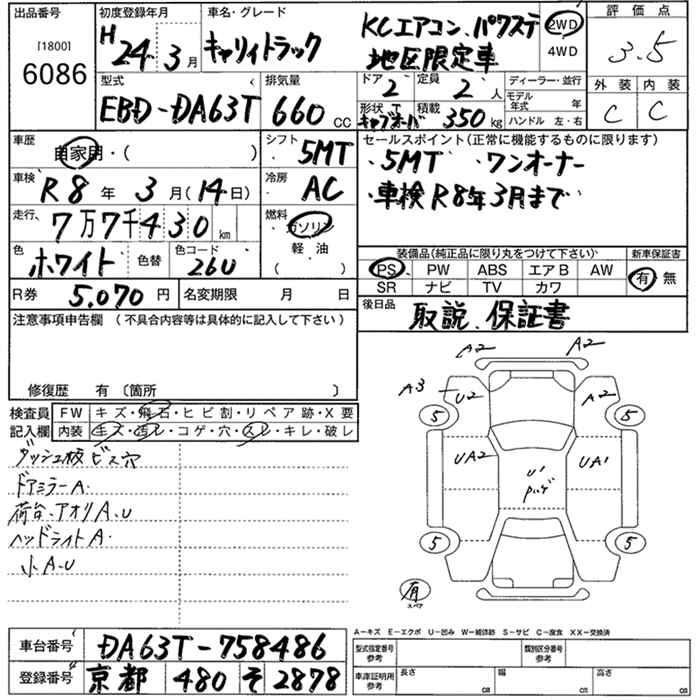 出品番号 [1800] 6086
初度登録年月 H 24年 3月
車名・グレード キャリィトラック KCエアコン、パワステ 地区限定車
2WD
4WD
評価点 3.5
外装 C 内装 C
型式 EBD-DA63T
排気量 660 CC
ドア 2 定員 2人
形状 キャブオーバ 積載 350 kg
ディーラー・並行
モデル年式 年
ハンドル 左・右
車歴 自家用・( )
シフト 5MT
車検 R8年 3月(14日)
冷房 AC
走行 7万7千430 km
燃料 ガソリン 軽油 ( )
色 ホワイト 色替 色コード 26U
R券 5,070円 名変期限 月 日
セールスポイント(正常に機能するものに限ります)
・5MT ・ワンオーナー
・車検R8年3月まで
装備品(純正品に限り丸をつけて下さい) 新車保証書
PS PW ABS エアB AW 有・無
SR ナビ TV カワ
後日品 取説、保証書
注意事項申告欄 (不具合内容等は具体的に記入して下さい)
修復歴 有 〔箇所 〕
検査員 FW キズ・飛石・ヒビ割・リペア跡・X要
記入欄 内装 キズ・汚レ・コゲ・穴・スレ・キレ・破レ
ダッシュ板ビス穴
ドアミラーA.
荷台、アオリA、U
ヘッドライトA.
小A.U
A2 A2
A3 U2 A2
5 5
UA2 U' UA1
5 5
有 スペア
A-キズ E-エクボ U-凹み W-補修跡 S-サビ C-腐食 XX-交換済
車台番号 DA63T-758486
登録番号 京都 480 そ 2878
型式指定番号 参考 類別区分番号 参考
車庫証明用 参考 長さ cm 幅 cm 高さ cm